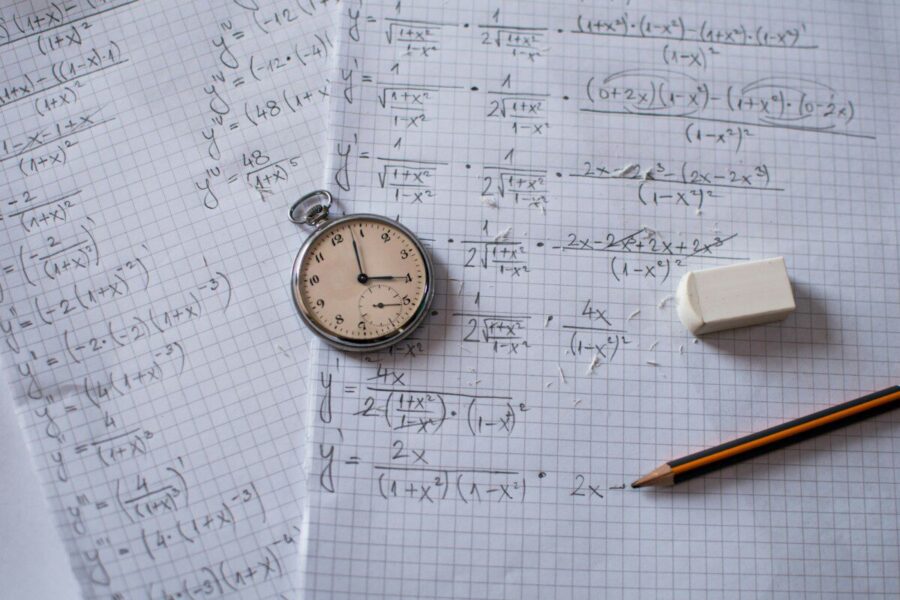 (1+x)²
1+x) - ((1-x)·1) / (1+x)²
-1-x-1+x / (1+x)²
-2 / (1+x)²
= (-2/(1+x)²)'
y'' = (-2(1+x)⁻²)'
y'' = (-2·(-2)(1+x)⁻³)
y'' = (4(1+x)⁻³)
y'' = 4/(1+x)³
y''' = (4/(1+x)³)'
y''' = (4·(1+x)⁻³)'
(4·(-3)(1+x)⁻⁴
yᴵⱽ = (-12(1
yᴵⱽ = (-12·(-4)
yᴵⱽ = (48(1+x
yᴵⱽ = 48/(1+x)⁵
y' = 1/√((1+x²)/(1-x²)) · 1/(2√((1+x²)/(1-x²))) · ((1+x²)'·(1-x²)-(1+x²)·(1-x²)')/(1-x)²
y' = 1/√((1+x²)/(1-x²)) · 1/(2√((1+x²)/(1-x²))) · ((0+2x)(1-x²)-(1+x²)·(0-2x))/(1-x²)²
y' = 1/√((1+x²)/(1-x²)) · 1/(2√((1+x²)/(1-x²))) · (2x-2x³-(2x-2x³))/(1-x²)²
· 1/(2√((1+x²)/(1-x²))) · (2x-2x³+2x+2x³)/(1-x²)²
· 1/(2√((1+x²)/(1-x²))) · 4x/(1-x²)²
y' = 4x/(2((1+x²)/(1-x²))·(1-x²)²)
y' = 2x/((1+x²)(1-x²)) · 2x -
12
4
5
7
8
9
10
11